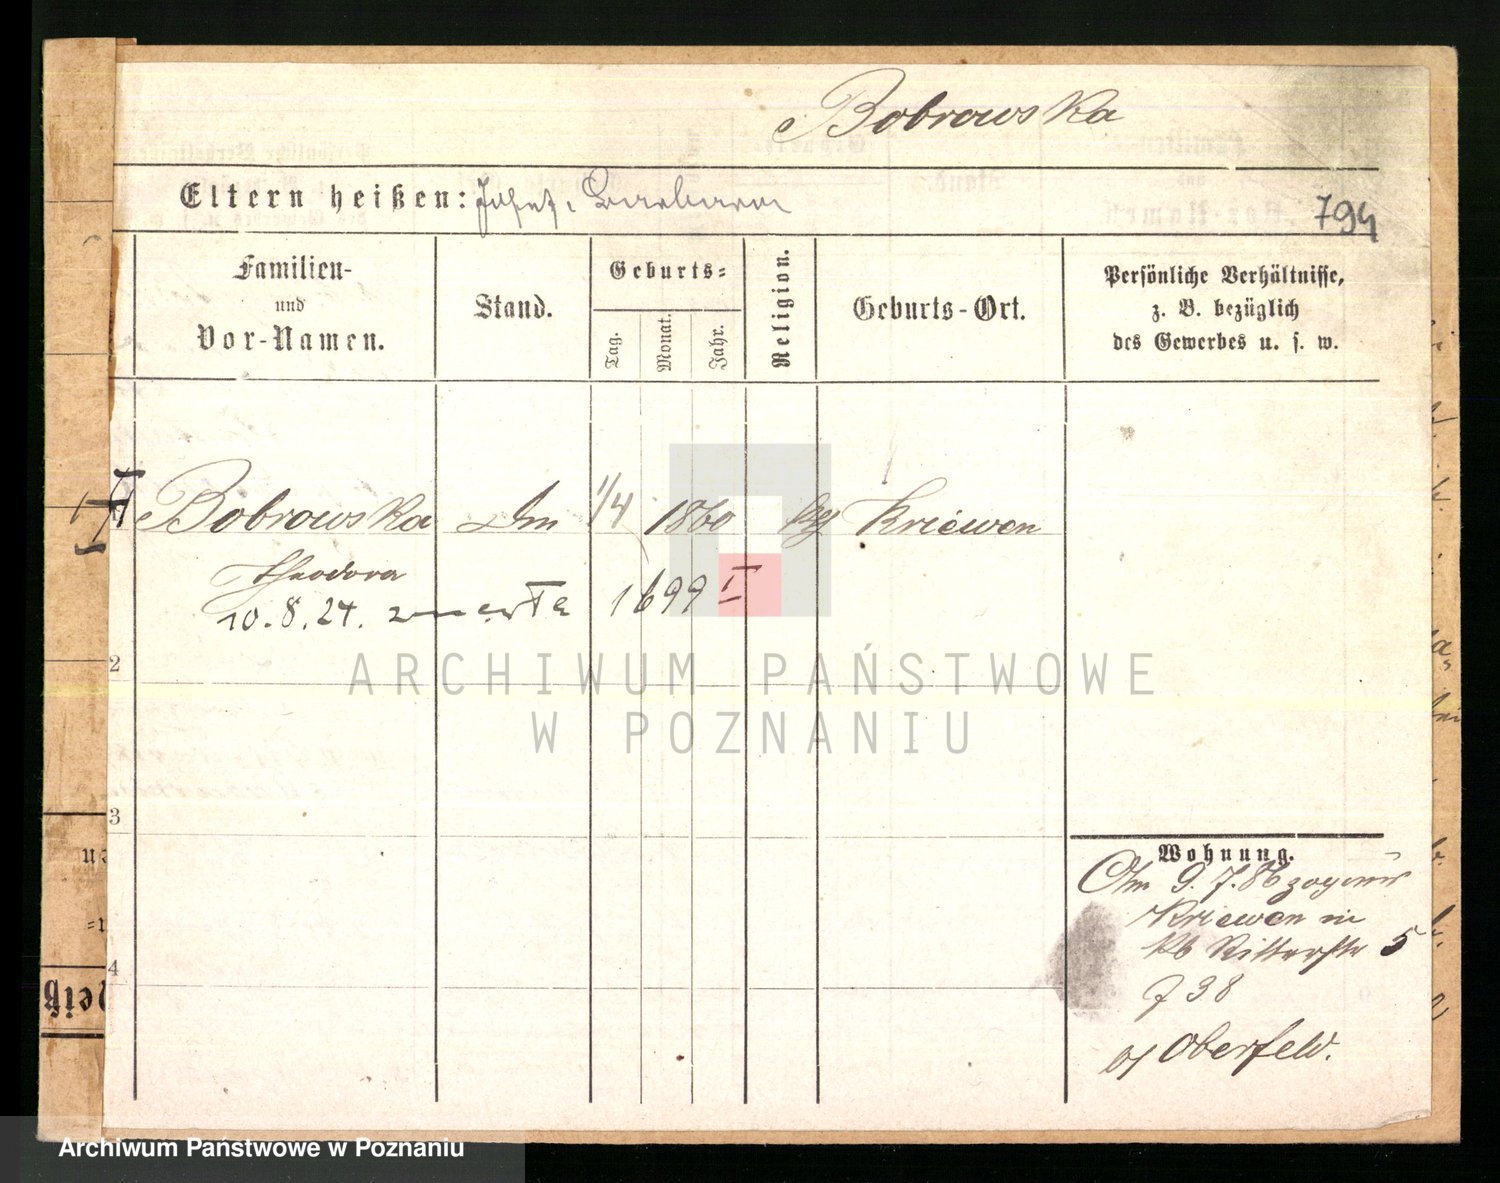 Bobrowska
Eltern heißen: Josef, Barbara
794
Familien-
und
Vor-Namen.
Stand.
Geburts-
Tag.
Monat.
Jahr.
Religion.
Geburts-Ort.
Persönliche Verhältnisse,
z. B. bezüglich
des Gewerbes u. s. w.
Bobrowska 1/4 1860 Kriewen
Theodora
10.8.24. 1699 I
2
3
4
Wohnung.
9.7.86
Kriewen in
Ritterstr 5
J 38
Oberfeld.
ARCHIWUM PAŃSTWOWE
W POZNANIU
Archiwum Państwowe w Poznaniu